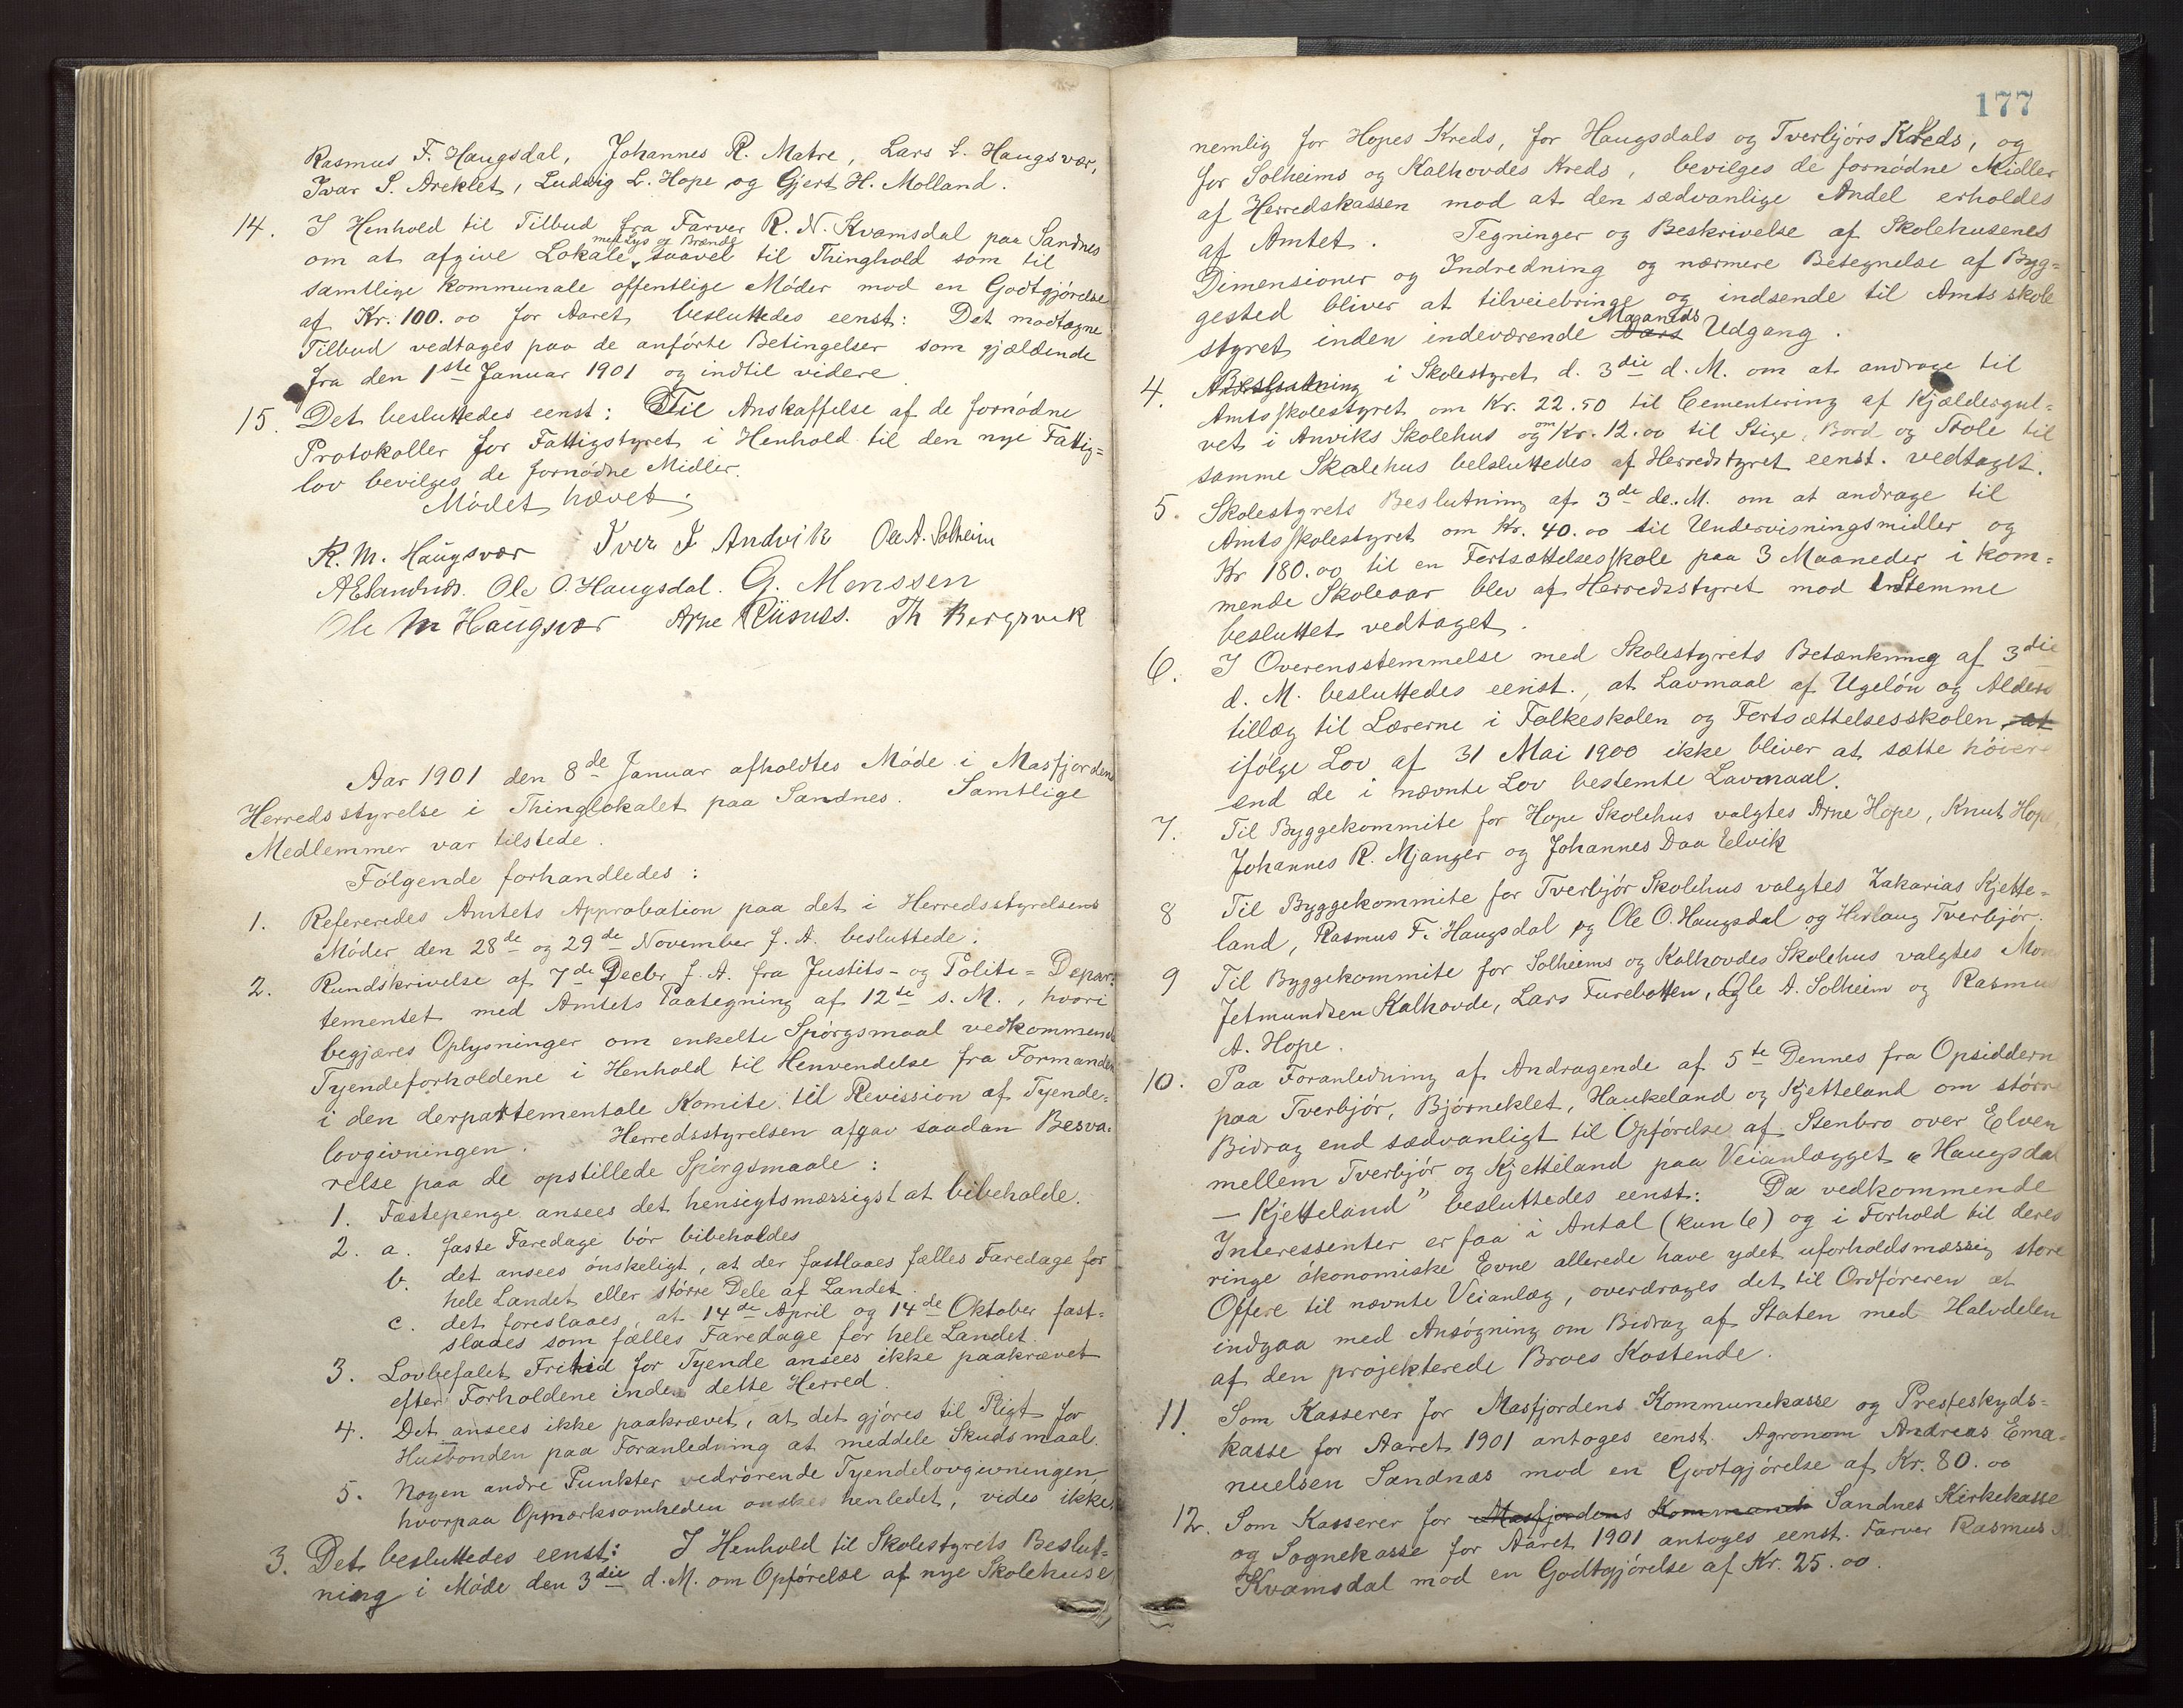 Rasmus F. Haugsdal, Johannes R. Matre, Lars L. Haugsvær,
Ivar S. Areklet, Ludvig L. Hope og Gjert H. Molland.
14. I Henhold til Tilbud fra Farver R. N. Kvamsdal paa Sandnes
med Lys og Brænde
om at afgive Lokale saavel til Thinghold som til
samtlige kommunale offentlige Møder mod en Godtgjørelse
af Kr. 100.00 for Aaret, besluttedes eenst: Det modtagne
Tilbud vedtages paa de anførte Betingelser som gjældende
fra den 1ste Januar 1901 og indtil videre.
15. Det besluttedes eenst: Til Anskaffelse af de fornødne
Protokoller for Fattigstyret i Henhold til den nye Fattig=
lov bevilges de fornødne Midler.
Mødet hævet.
R. M. Haugsvær Iver J Andvik Ole A. Solheim
AESandnæs. Ole O. Haugsdal. G. Monssen
Ole M Haugsvær Arne Risnes. Th Bergsvik
Aar 1901 den 8de Januar afholdtes Møde i Masfjorden
Herredsstyrelse i Thinglokalet paa Sandnes. Samtlige
Medlemmer var tilstede.
Følgende forhandledes:
1. Refereredes Amtets Approbation paa det i Herredsstyrelsens
Møder den 28de og 29de November f. A. besluttede.
2. Rundskrivelse af 7de Decbr f. A. fra Justits- og Politi=Depar=
tementet med Amtets Paategning af 12te s. M., hvori
begjæres Oplysninger om enkelte Spørgsmaal vedkommende
Tyendeforholdene i Henhold til Henvendelse fra Formanden
i den derpartementale Komite til Revission af Tyende=
lovgivningen. Herredsstyrelsen afgav saadan Besva=
relse paa de opstillede Spørgsmaale:
1. Fæstepenge ansees det hensigtsmæssigst at bibeholde.
2. a. faste Faredage bør bibeholdes
b. det ansees ønskeligt, at der fastlaaes fælles Faredage for
hele Landet eller større Dele af Landet.
c. det foreslaaes, at 14de April og 14de Oktober fast=
slaaes som fælles Faredage for hele Landet.
3. Lovbefalet Fritid for Tyende ansees ikke paakrævet
efter Forholdene inden dette Herred.
4. Det ansees ikke paakrævet, at det gjøres til Pligt for
Husbonden paa Foranledning at meddele Skudsmaal.
5. Nogen andre Punkter vedrørende Tyendelovgivningen,
hvorpaa Opmærksomheden ønskes henledet, vides ikke.
3. Det besluttedes eenst: I Henhold til Skolestyrets Beslut=
ning i Møde den 3die d. M. om Opførelse af nye Skolehuse,
177
nemlig for Hopes Kreds, for Haugsdals og Tverbjørs Kreds, og
for Solheims og Kalhovdes Kreds, bevilges de fornødne Midler
af Herredskassen mod at den sædvanlige Andel erholdes
af Amtet. Tegninger og Beskrivelse af Skolehusenes
Dimensioner og Indredning og nærmere Betegnelse af Byg=
gested bliver at tilveiebringe og indsende til Amtsskole
Maaneds
styret inden indeværende Aars Udgang.
4. Beslutning i Skolestyret d. 3die d. M. om at andrage til
Amtsskolestyret om Kr. 22.50 til Cementering af Kjældergul=
vet i Anviks Skolehus og om Kr. 12.00 til Stige, Bord og Stole til
samme Skolehus belsluttedes af Herredstyret eenst. vedtaget.
5. Skolestyrets Beslutning af 3de de. M. om at andrage til
Amtsskolestyret om Kr. 40.00 til Undervisningsmidler og
Kr 180.00 til en Fortsættelsesskole paa 3 Maaneder i kom=
mende Skoleaar blev af Herredsstyret mod 1 Stemme
besluttet vedtaget.
6. I Overensstemmelse med Skolestyrets Betænkning af 3die
d. M. besluttedes eenst., at Lavmaal af Ugeløn og Alders
tillæg til Lærerne i Folkeskolen og Fortsættelsesskolen at
ifølge Lov af 31 Mai 1900 ikke bliver at sætte høiere
end de i nævnte Lov bestemte Lavmaal.
7. Til Byggekommite for Hope Skolehus valgtes Arne Hope, Knut Hope,
Johannes R. Mjanger og Johannes Daa Elvik
8 Til Byggekommite for Tverbjør Skolehus valgtes Zakarias Kjette=
land, Rasmus F. Haugsdal og Ole O. Haugsdal og Herlaug Tverbjør.
9 Til Byggekommite for Solheims og Kalhovdes Skolehus valgtes Mons
Jetmundsen Kalhovde, Lars Furebotten, Ole A. Solheim og Rasmus
A. Hope.
10. Paa Foranledning af Andragende af 5te Dennes fra Opsiddern
paa Tverbjør, Bjørneklet, Haukeland og Kjetteland om større
Bidrag end sædvanligt til Opførelse af Stenbro over Elven
mellem Tverbjør og Kjetteland paa Veianlægget „Haugsdal
— Kjetteland" besluttedes eenst: Da vedkommende
Interessenter er faa i Antal (kun 6) og i Forhold til deres
ringe økonomiske Evne allerede have ydet uforholdsmæssig store
Offere til nævnte Veianlæg, overdrages det til Ordføreren at
indgaa med Ansøgning om Bidrag af Staten med Halvdelen
af den projekterede Broes Kostende.
11. Som Kasserer for Masfjordens Kommunekasse og Presteskyds=
kasse for Aaret 1901 antoges eenst. Agronom Andreas Ema=
nuelsen Sandnæs mod en Godtgjørelse af Kr. 80.00
12. Som Kasserer for Masfjordens Sandnes Kirkekasse
og Sognekasse for Aaret 1901 antoges eenst. Farver Rasmus
Kvamsdal mod en Godtgjørelse af Kr. 25.00.